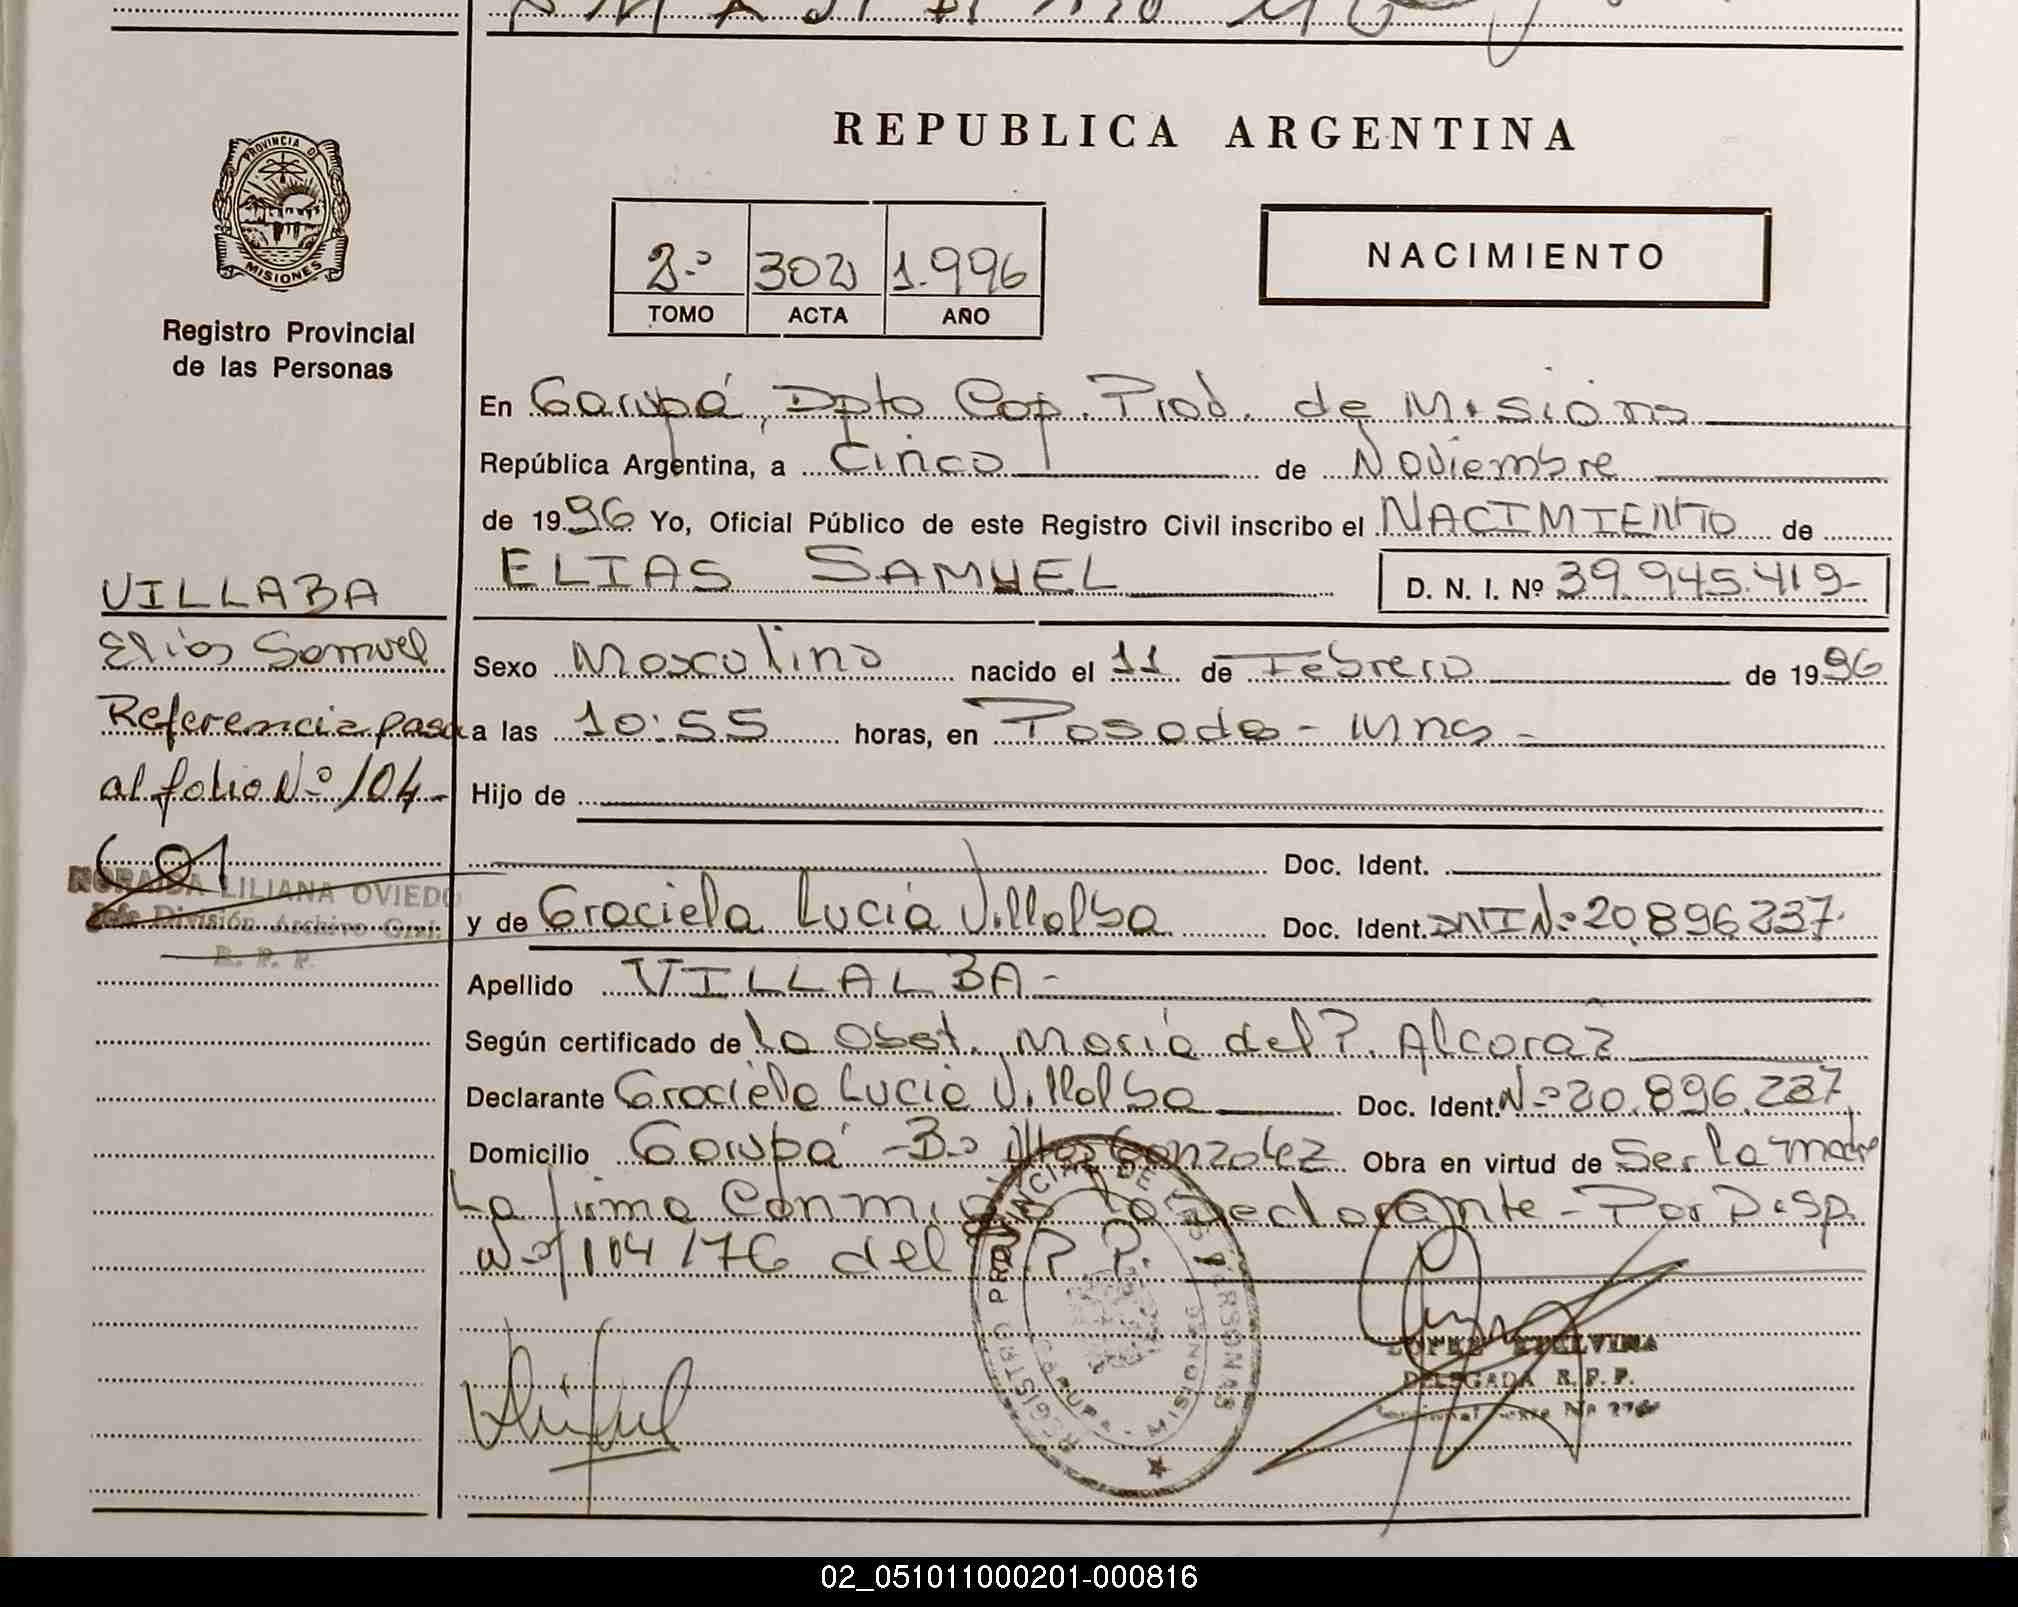 REPUBLICA ARGENTINA
PROVINCIA DE
MISIONES
Registro Provincial
de las Personas
2.º 302 1.996
TOMO ACTA AÑO
NACIMIENTO
En Garupá, Dpto Cap. Prov. de Misiones
República Argentina, a Cinco de Noviembre
de 1996 Yo, Oficial Público de este Registro Civil inscribo el NACIMIENTO de
ELIAS SAMUEL D. N. I. Nº 39.945.419-
VILLABA
Elias Samuel
Referencia pasa
al folio Nº 104-
NORAIDA LILIANA OVIEDO
Jefe División Archivo Gral.
R. P. P.
Sexo Masculino nacido el 11 de Febrero de 1996
a las 10:55 horas, en Posadas - Mnes -
Hijo de
Doc. Ident.
y de Graciela Lucia Villalba Doc. Ident. DNI Nº 20.896.237.
Apellido VILLALBA-
Según certificado de la Obst. Maria del P. Alcaraz
Declarante Graciela Lucia Villalba Doc. Ident. Nº 20.896.237
Domicilio Garupá - Bº Gonzalez Obra en virtud de Ser la madre
La firma Conmigo la Declarante - Por Disp.
Nº 104/76 del R. P. P.
REGISTRO PROVINCIAL DE LAS PERSONAS
GARUPA - MISIONES
LOPEZ ETELVINA
DELEGADA R. P. P.
02_051011000201-000816